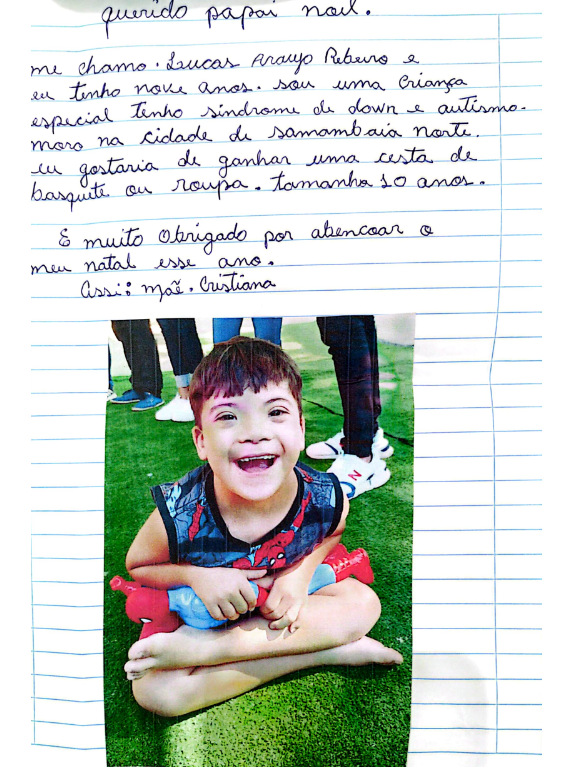 querido papai noel.
me chamo. Lucas Araujo Rebeiro e
eu tenho nove anos. sou uma criança
especial tenho sindrome de down e autismo.
moro na cidade de samambaia norte.
eu gostaria de ganhar uma cesta de
basquete ou roupa. tamanho 10 anos.
E muito Obrigado por abencoar o
meu natal esse ano.
Assi: mãe. Cristiana
N